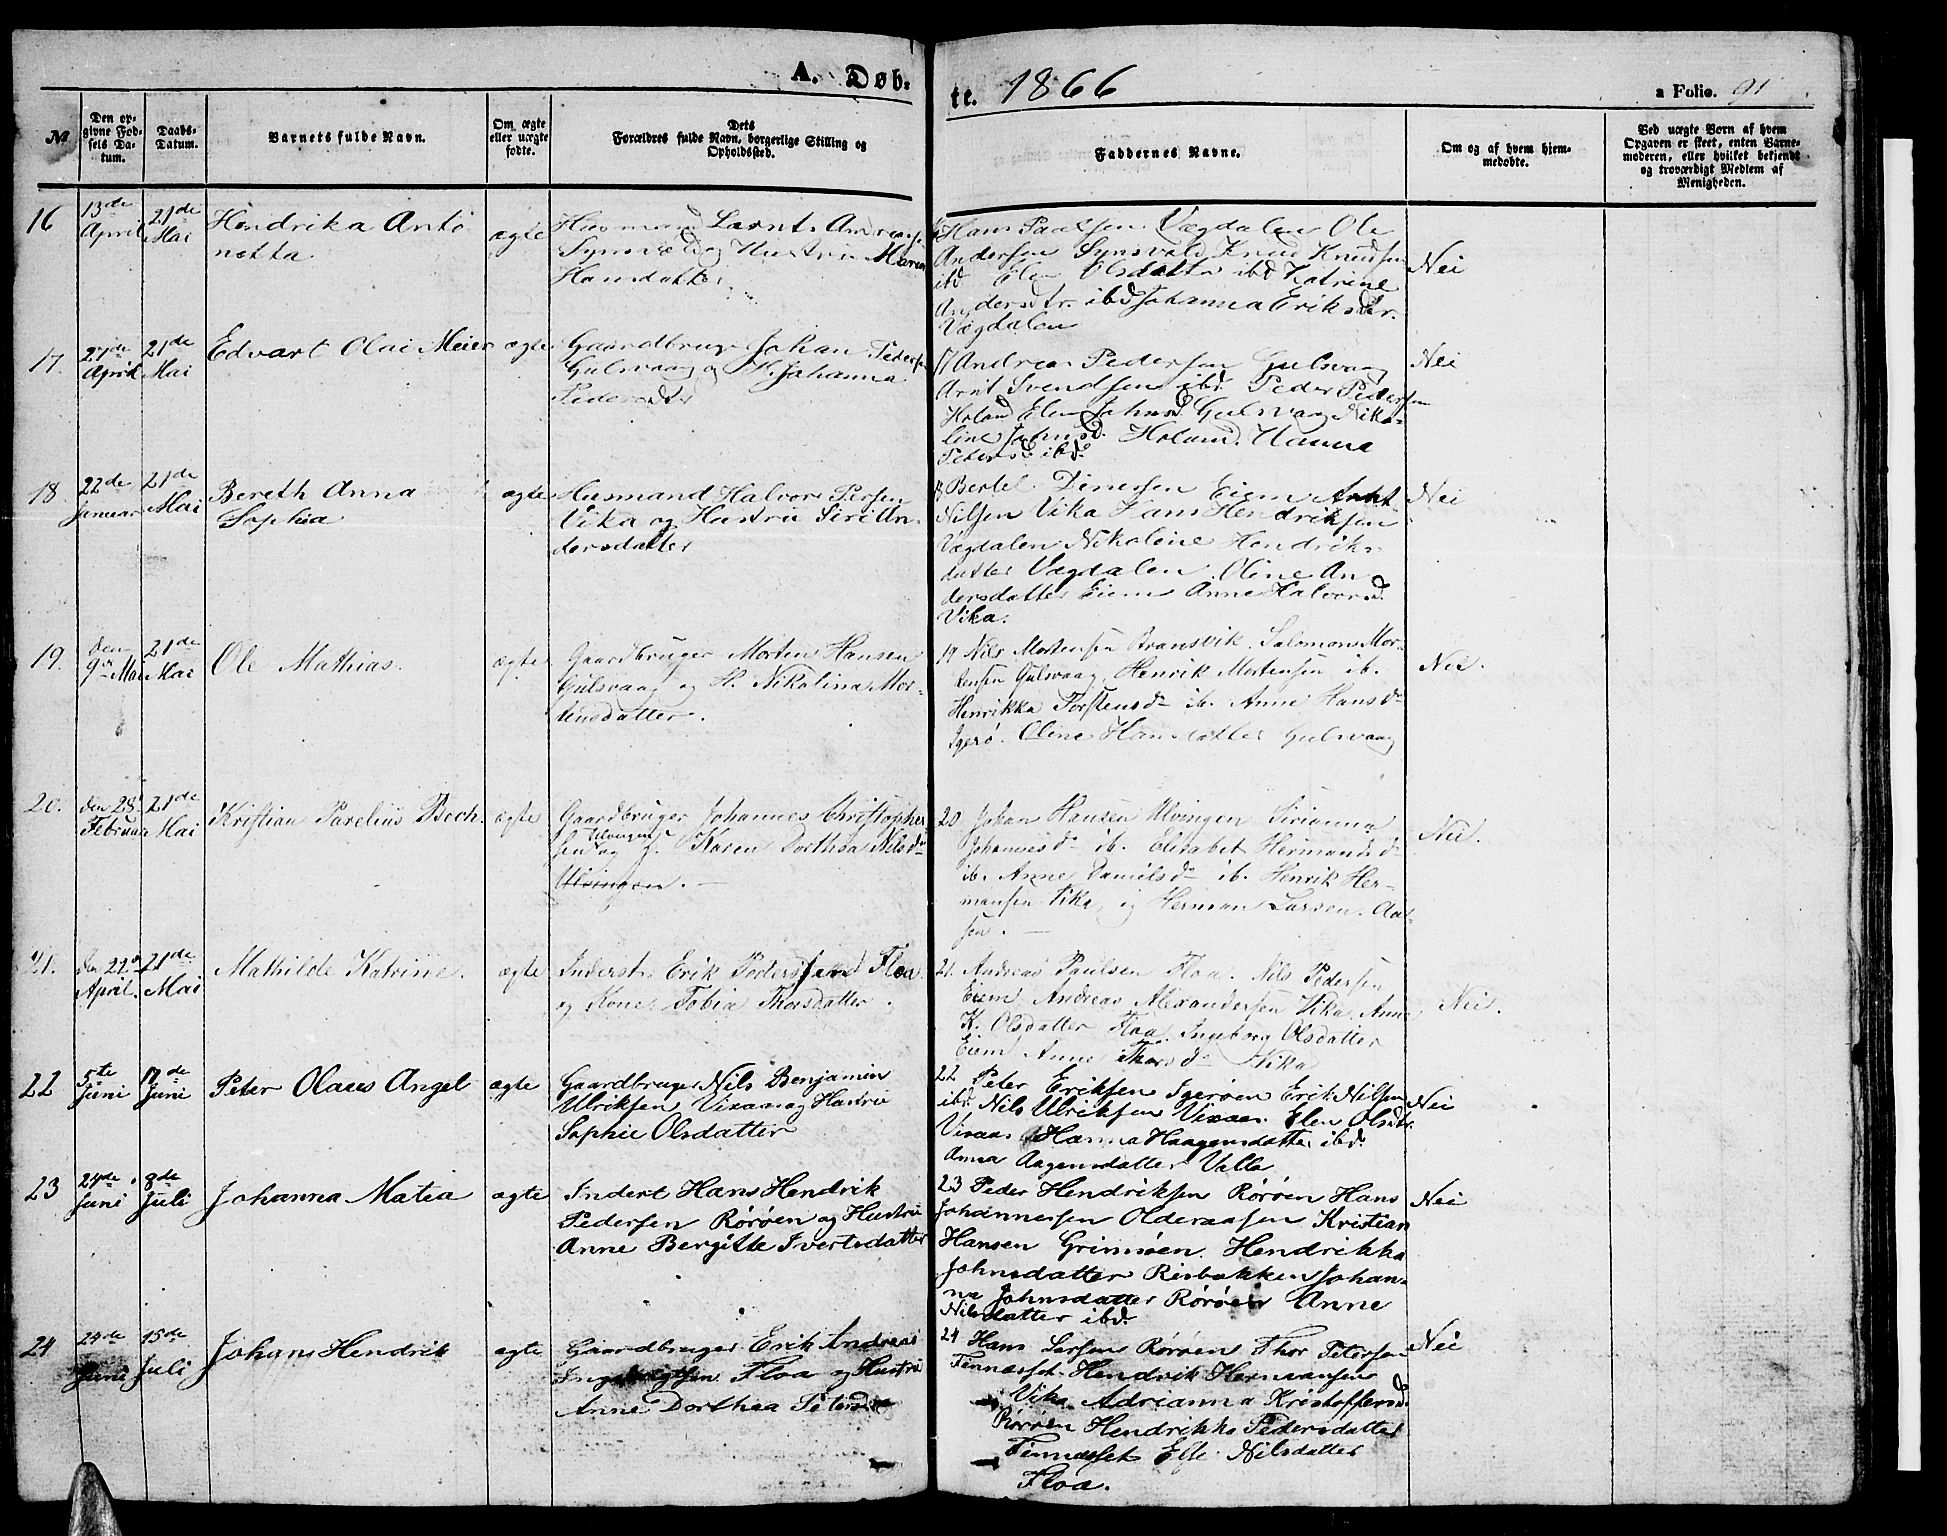 A. Døb-
te. 1866
a Folio. 91
№
Den op-
givne Fød-
sels Da-
tum.
Daabs-
Datum.
Barnets fulde Navn.
Om ægte
eller uægte
fødte.
Dets
Forældres fulde Navn, borgerlige Stilling og
Opholdssted.
Faddernes Navne.
Om og af hvem hjem-
medøbte.
Ved uægte Born af hvem
Opgaven er skeet, enten Barne-
moderen, eller hvilket bekjendt
og troværdigt Medlem af
Menigheden.
16
13de
April
21de
Mai
Hendrika Anto
netta
ægte
Husmand Larnts Andreas
Synsvold og Hustru Maria
Hansdatter
Hans Paalsen Vægdalen Ole
Andersen Synsvold Knud Knudsen
ibd Elen Olsdatter ibd Katrine
Andersdtr. ibd Johanna Eriksdtr.
Vægdalen
Nei
17.
27de
April
21de
Mai
Edvart Olai Meier
ægte
Gaardbruger Johan Peders
Gulsvaag og H. Johanna
Pedersdtr
17 Andreas Pedersen Gulsvaag
Arnt Svendsen ibd. Peder Pedersen
Holand Elen Johnsd Gulsvaag Niko-
line Johnsd. Holand. Hanna
Petersd ibd.
Nei
18.
22de
Januar
21de
Mai
Bereth Anna
Sophia
ægte
Husmand Halvor Persen
Vika og Hustru Siri An-
dersdatter
18 Bertel Dinesen Eiem Arnt
Nilsen Vika Hans Hendriksen
Vægdalen Nikoleine Hendriks-
datter Vægdalen. Oline An
dersdatter Eiem Anne Halvorsd.
Vika.
Nei
19.
den
9de Mai
21de
Mai
Ole Mathias.
ægte
Gaardbruger Morten Hansen
Gulsvaag og H. Nikolina Mor-
tensdatter.
19 Nils Mortensen Bransvik. Salomon Mor-
tensen Gulsvaag, Henrik Mortensen ib.
Henrikka Torstensd. ib. Anne Hansd.
Igerø. Oline Hansdatter Gulsvaag
Nei.
20.
den 28
Februar
21de
Mai
Kristian Parelius Bech.
ægte
Gaardbruger Johannes Christopher
sen Ulvingen og H. Karen Dorthea Nilsd.
Ulvingen. —
20 Johan Hansen Ulvingen Sirianna
Johannesd. ib. Elisabet Hermansd
ib. Anne Danielsd. ib. Henrik Her-
mansen Vika, og Herman Larsen. Aa-
sen. —
Nei.
21.
den 22
April.
21de
Mai
Mathilde Katrine.
ægte
Inderst. Erik Pedersen Floa
og Kone Tobia Thorsdatter.
21. Andreas Paulsen Floa. Nils Pedersen
Eiem, Andreas Alexandersen Vika, Anne
K. Olsdatter Floa. Ingeborg Olsdatter
Eiem Anne Thorsd. Vika
Nei.
22
5te
Juni
17de
Juni
Peter Olaus Angel
ægte
Gaardbruger Nils Benjamin
Ulriksen Visaas og Hustru
Sophie Olsdatter
22 Peter Eriksen Igerøen Erik Nilsen
ibd. Nils Ulriksen Visaas. Elen Olsdtr.
Visaas Hanna Haagensdatter ibd.
Anna Aagensdatter Valla
Nei
23
24de
Juni
8de
Juli
Johanna Matea
ægte
Inderst Hans Hendrik
Pedersen Rørøen og Hustru
Anne Bergitte Ivertsdatter
23 Peder Hendriksen Rørøen Hans
Johannessen Olderaasen Kristian
Hansen Grimsøen. Hendrikka
Johnsdatter Risbakken Johan-
na Johnsdatter Rørøen Anne
Nilsdatter ibd.
Nei
24
24de
Juni
15de
Juli
Johan Hendrik
ægte
Gaardbruger Erik Andreas
Ingebrigtsen Floa og Hustru
Anne Dorthea Petersd
24 Hans Larsen Rørøen Thor Petersen
Tennæsset Hendrik Hermansen
Vika Adrianna Kristoffersd.
Rørøen Hendrikka Pedersdatter
Tennæsset Else Nilsdatter
Floa.
Nei